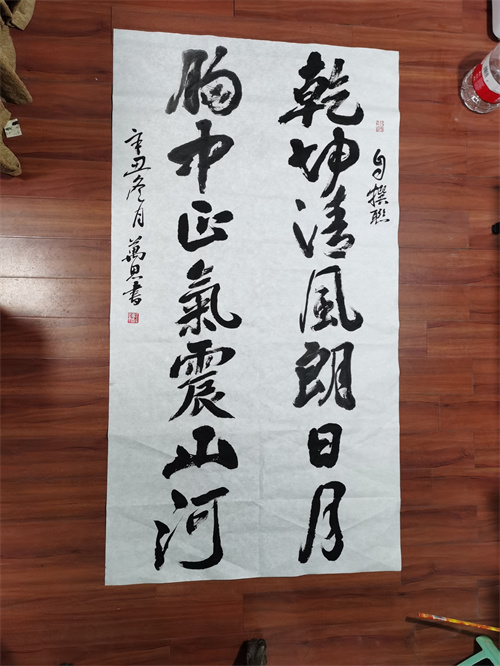 自撰聯
乾坤清風朗日月
胸中正氣震山河
辛丑冬月 萬里書